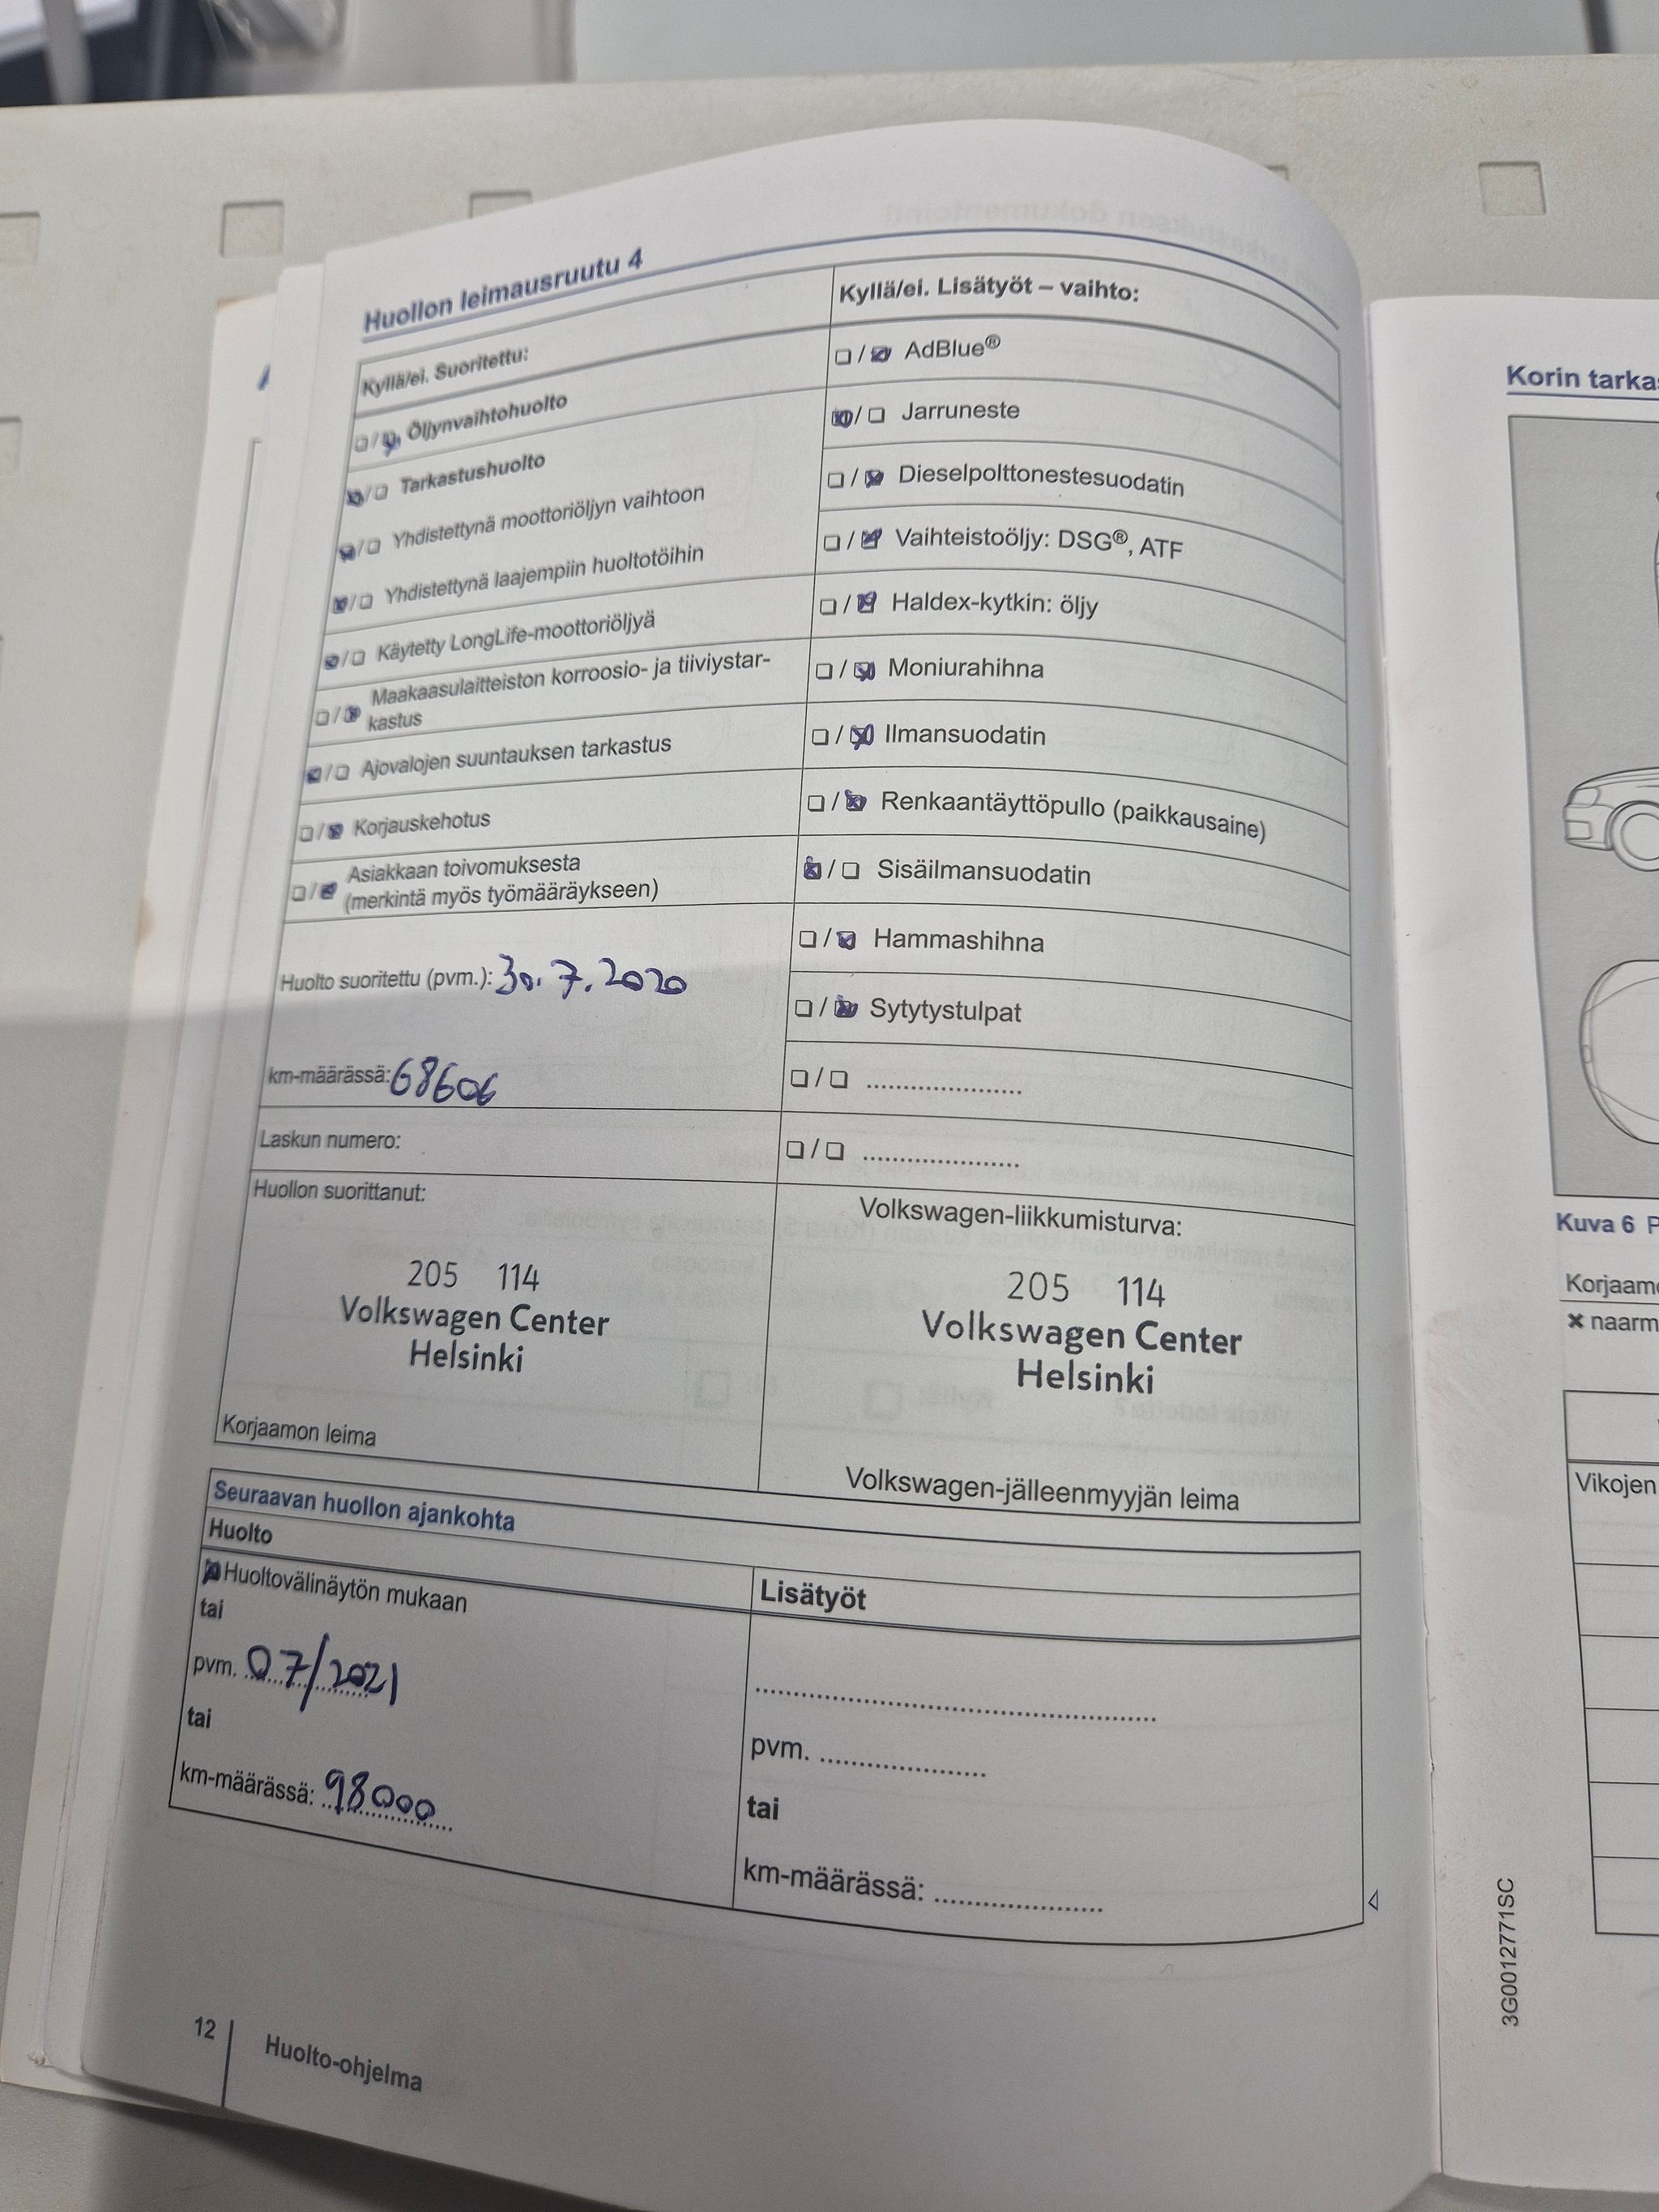 Huollon leimausruutu 4
Kyllä/ei. Suoritettu:
☐/☒ Öljynvaihtohuolto
☒/☐ Tarkastushuolto
☒/☐ Yhdistettynä moottoriöljyn vaihtoon
☒/☐ Yhdistettynä laajempiin huoltotöihin
☒/☐ Käytetty LongLife-moottoriöljyä
☐/☒ Maakaasulaitteiston korroosio- ja tiiviystar-
kastus
☒/☐ Ajovalojen suuntauksen tarkastus
☐/☒ Korjauskehotus
☐/☒ Asiakkaan toivomuksesta
(merkintä myös työmääräykseen)
Huolto suoritettu (pvm.): 30.7.2020
km-määrässä: 68606
Laskun numero:
Huollon suorittanut:
205 114
Volkswagen Center
Helsinki
Korjaamon leima
Kyllä/ei. Lisätyöt – vaihto:
☐/☒ AdBlue®
☒/☐ Jarruneste
☐/☒ Dieselpolttonestesuodatin
☐/☒ Vaihteistoöljy: DSG®, ATF
☐/☒ Haldex-kytkin: öljy
☐/☒ Moniurahihna
☐/☒ Ilmansuodatin
☐/☒ Renkaantäyttöpullo (paikkausaine)
☒/☐ Sisäilmansuodatin
☐/☒ Hammashihna
☐/☒ Sytytystulpat
☐/☐ ......................
☐/☐ ......................
Volkswagen-liikkumisturva:
205 114
Volkswagen Center
Helsinki
Volkswagen-jälleenmyyjän leima
Seuraavan huollon ajankohta
Huolto
☒ Huoltovälinäytön mukaan
tai
pvm. 07/2021
tai
km-määrässä: 98000
Lisätyöt
......................
pvm. ......................
tai
km-määrässä: ......................
12
Huolto-ohjelma
Korin
Kuva 6
✖
Vikojen
3G0012771SC